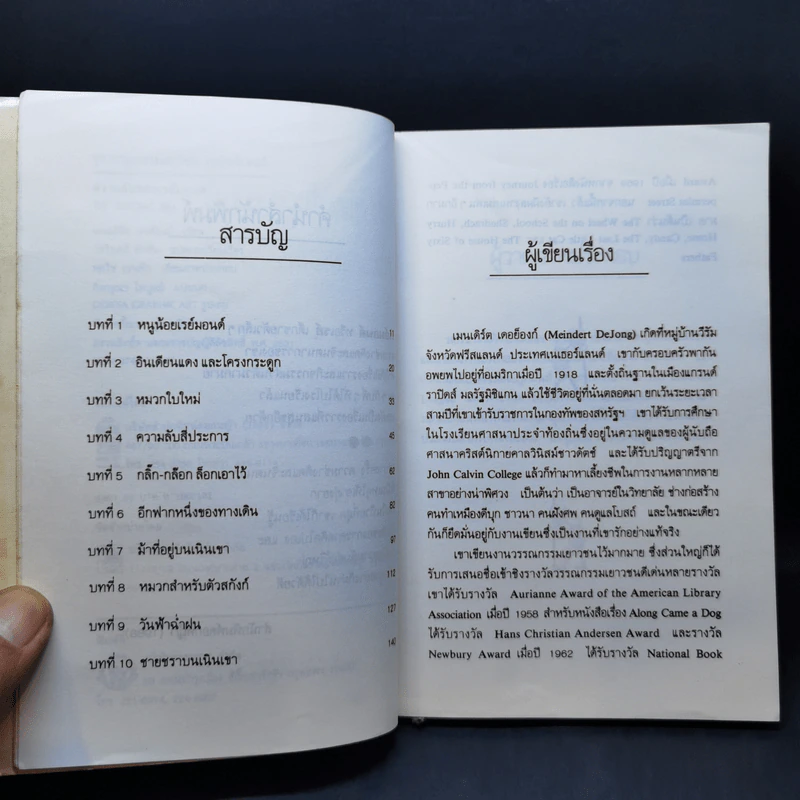 สารบัญ
บทที่ 1 หนูน้อยเรย์มอนด์ 11
บทที่ 2 อินเดียนแดง และโครงกระดูก 20
บทที่ 3 หมวกใบใหม่ 33
บทที่ 4 ความลับสี่ประการ 45
บทที่ 5 กลิ๊ก-กล๊อก ล็อกเอาไว้ 62
บทที่ 6 อีกฟากหนึ่งของทางเดิน 80
บทที่ 7 ม้าที่อยู่บนเนินเขา 97
บทที่ 8 หมวกสำหรับตัวสกังก์ 112
บทที่ 9 วันฟ้าฉ่ำฝน 127
บทที่ 10 ชายชราบนเนินเขา
ผู้เขียนเรื่อง
เมนเดิร์ต เดอย็องก์ (Meindert DeJong) เกิดที่หมู่บ้านวีรัม
จังหวัดฟรีสแลนด์ ประเทศเนเธอร์แลนด์ เขากับครอบครัวพากัน
อพยพไปอยู่ที่อเมริกาเมื่อปี 1918 และตั้งถิ่นฐานในเมืองแกรนด์
ราปิดส์ มลรัฐมิชิแกน แล้วใช้ชีวิตอยู่ที่นั่นตลอดมา ยกเว้นระยะเวลา
สามปีที่เขาเข้ารับราชการในกองทัพของสหรัฐฯ เขาได้รับการศึกษา
ในโรงเรียนศาสนาประจำท้องถิ่นซึ่งอยู่ในความดูแลของผู้นับถือ
ศาสนาคริสต์นิกายคาลวินิสม์ชาวดัตช์ และได้รับปริญญาตรีจาก
John Calvin College แล้วก็ทำมาหาเลี้ยงชีพในการงานหลากหลาย
สาขาอย่างน่าพิศวง เป็นต้นว่า เป็นอาจารย์ในวิทยาลัย ช่างก่อสร้าง
คนทำเหมืองดีบุก ชาวนา คนฝังศพ คนดูแลโบสถ์ และในขณะเดียว
กันก็ยึดมั่นอยู่กับงานเขียนซึ่งเป็นงานที่เขารักอย่างแท้จริง
เขาเขียนงานวรรณกรรมเยาวชนไว้มากมาย ซึ่งส่วนใหญ่ก็ได้
รับการเสนอชื่อเข้าชิงรางวัลวรรณกรรมเยาวชนดีเด่นหลายรางวัล
เขาได้รับรางวัล Aurianne Award of the American Library
Association เมื่อปี 1958 สำหรับหนังสือเรื่อง Along Came a Dog
ได้รับรางวัล Hans Christian Andersen Award และรางวัล
Newbury Award เมื่อปี 1962 ได้รับรางวัล National Book